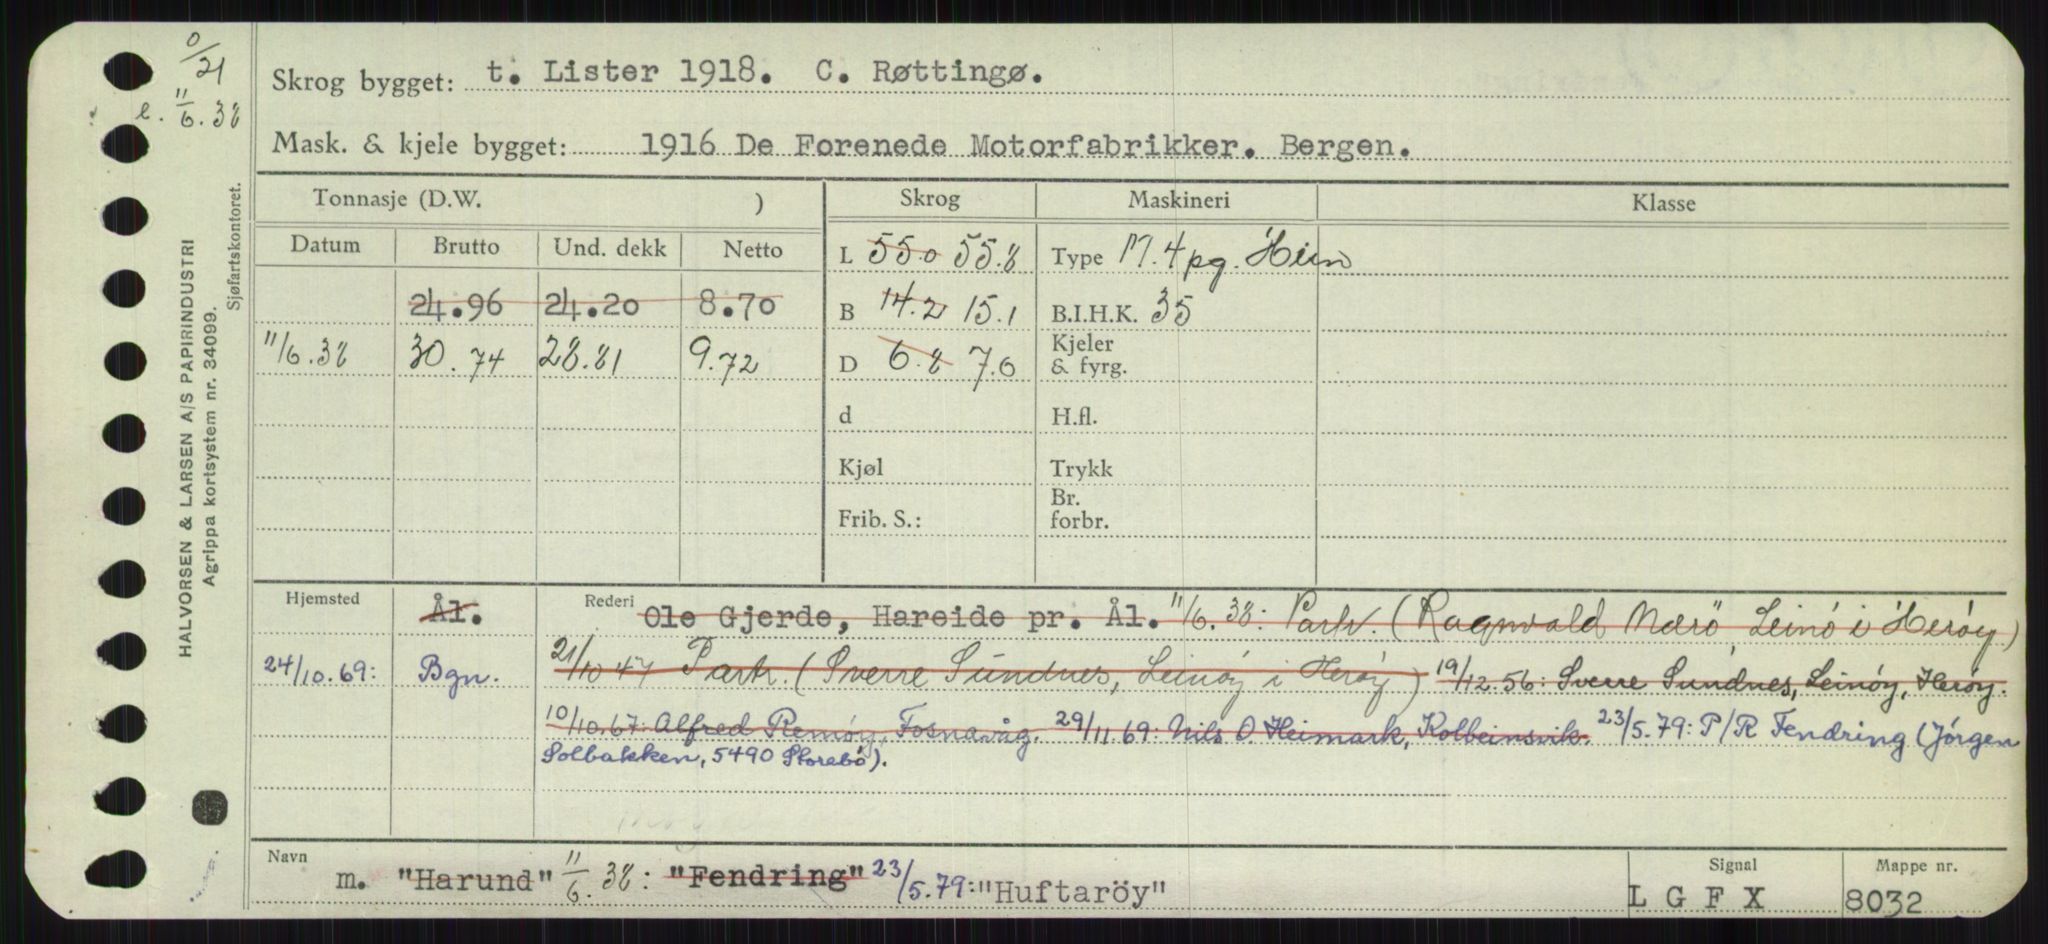 0/21
e. 11/6.38
HALVORSEN & LARSEN A/S PAPIRINDUSTRI
Agrippa kortsystem nr. 34099.
Sjøfartskontoret.
Skrog bygget: t. Lister 1918. C. Røttingø.
Mask. & kjele bygget: 1916 De Forenede Motorfabrikker. Bergen.
Tonnasje (D.W. ) Skrog Maskineri Klasse
Datum Brutto Und. dekk Netto
L 55.0 55.8 Type M. 4 pg. Hein
24.96 24.20 8.70
B 14.2 15.1 B.I.H.K. 35
11/6.38 30.74 28.81 9.72
D 6.8 7.0 Kjeler & fyrg.
d H.fl.
Kjøl Trykk
Frib. S.: Br. forbr.
Hjemsted Ål. Rederi Ole Gjerde, Hareide pr. Ål. 11/6.38: Partr. (Ragnvald Nærö, Leinö i Heröy)
24/10.69: Bgn. 21/10 47 Partr. (Sverre Sundnes, Leinöy i Heröy) 19/12.56: Sverre Sundnes, Leinöy, Heröy.
10/10.67: Alfred Remöy, Fosnavåg. 29/11.69: Nils O. Heimark, Kolbeinsvik. 23/5.79: P/R Fendring (Jörgen
Solbakken, 5490 Storebö).
Navn m. "Harund" 11/6.38: "Fendring" 23/5.79: "Huftaröy"
Signal LGFX
Mappe nr. 8032